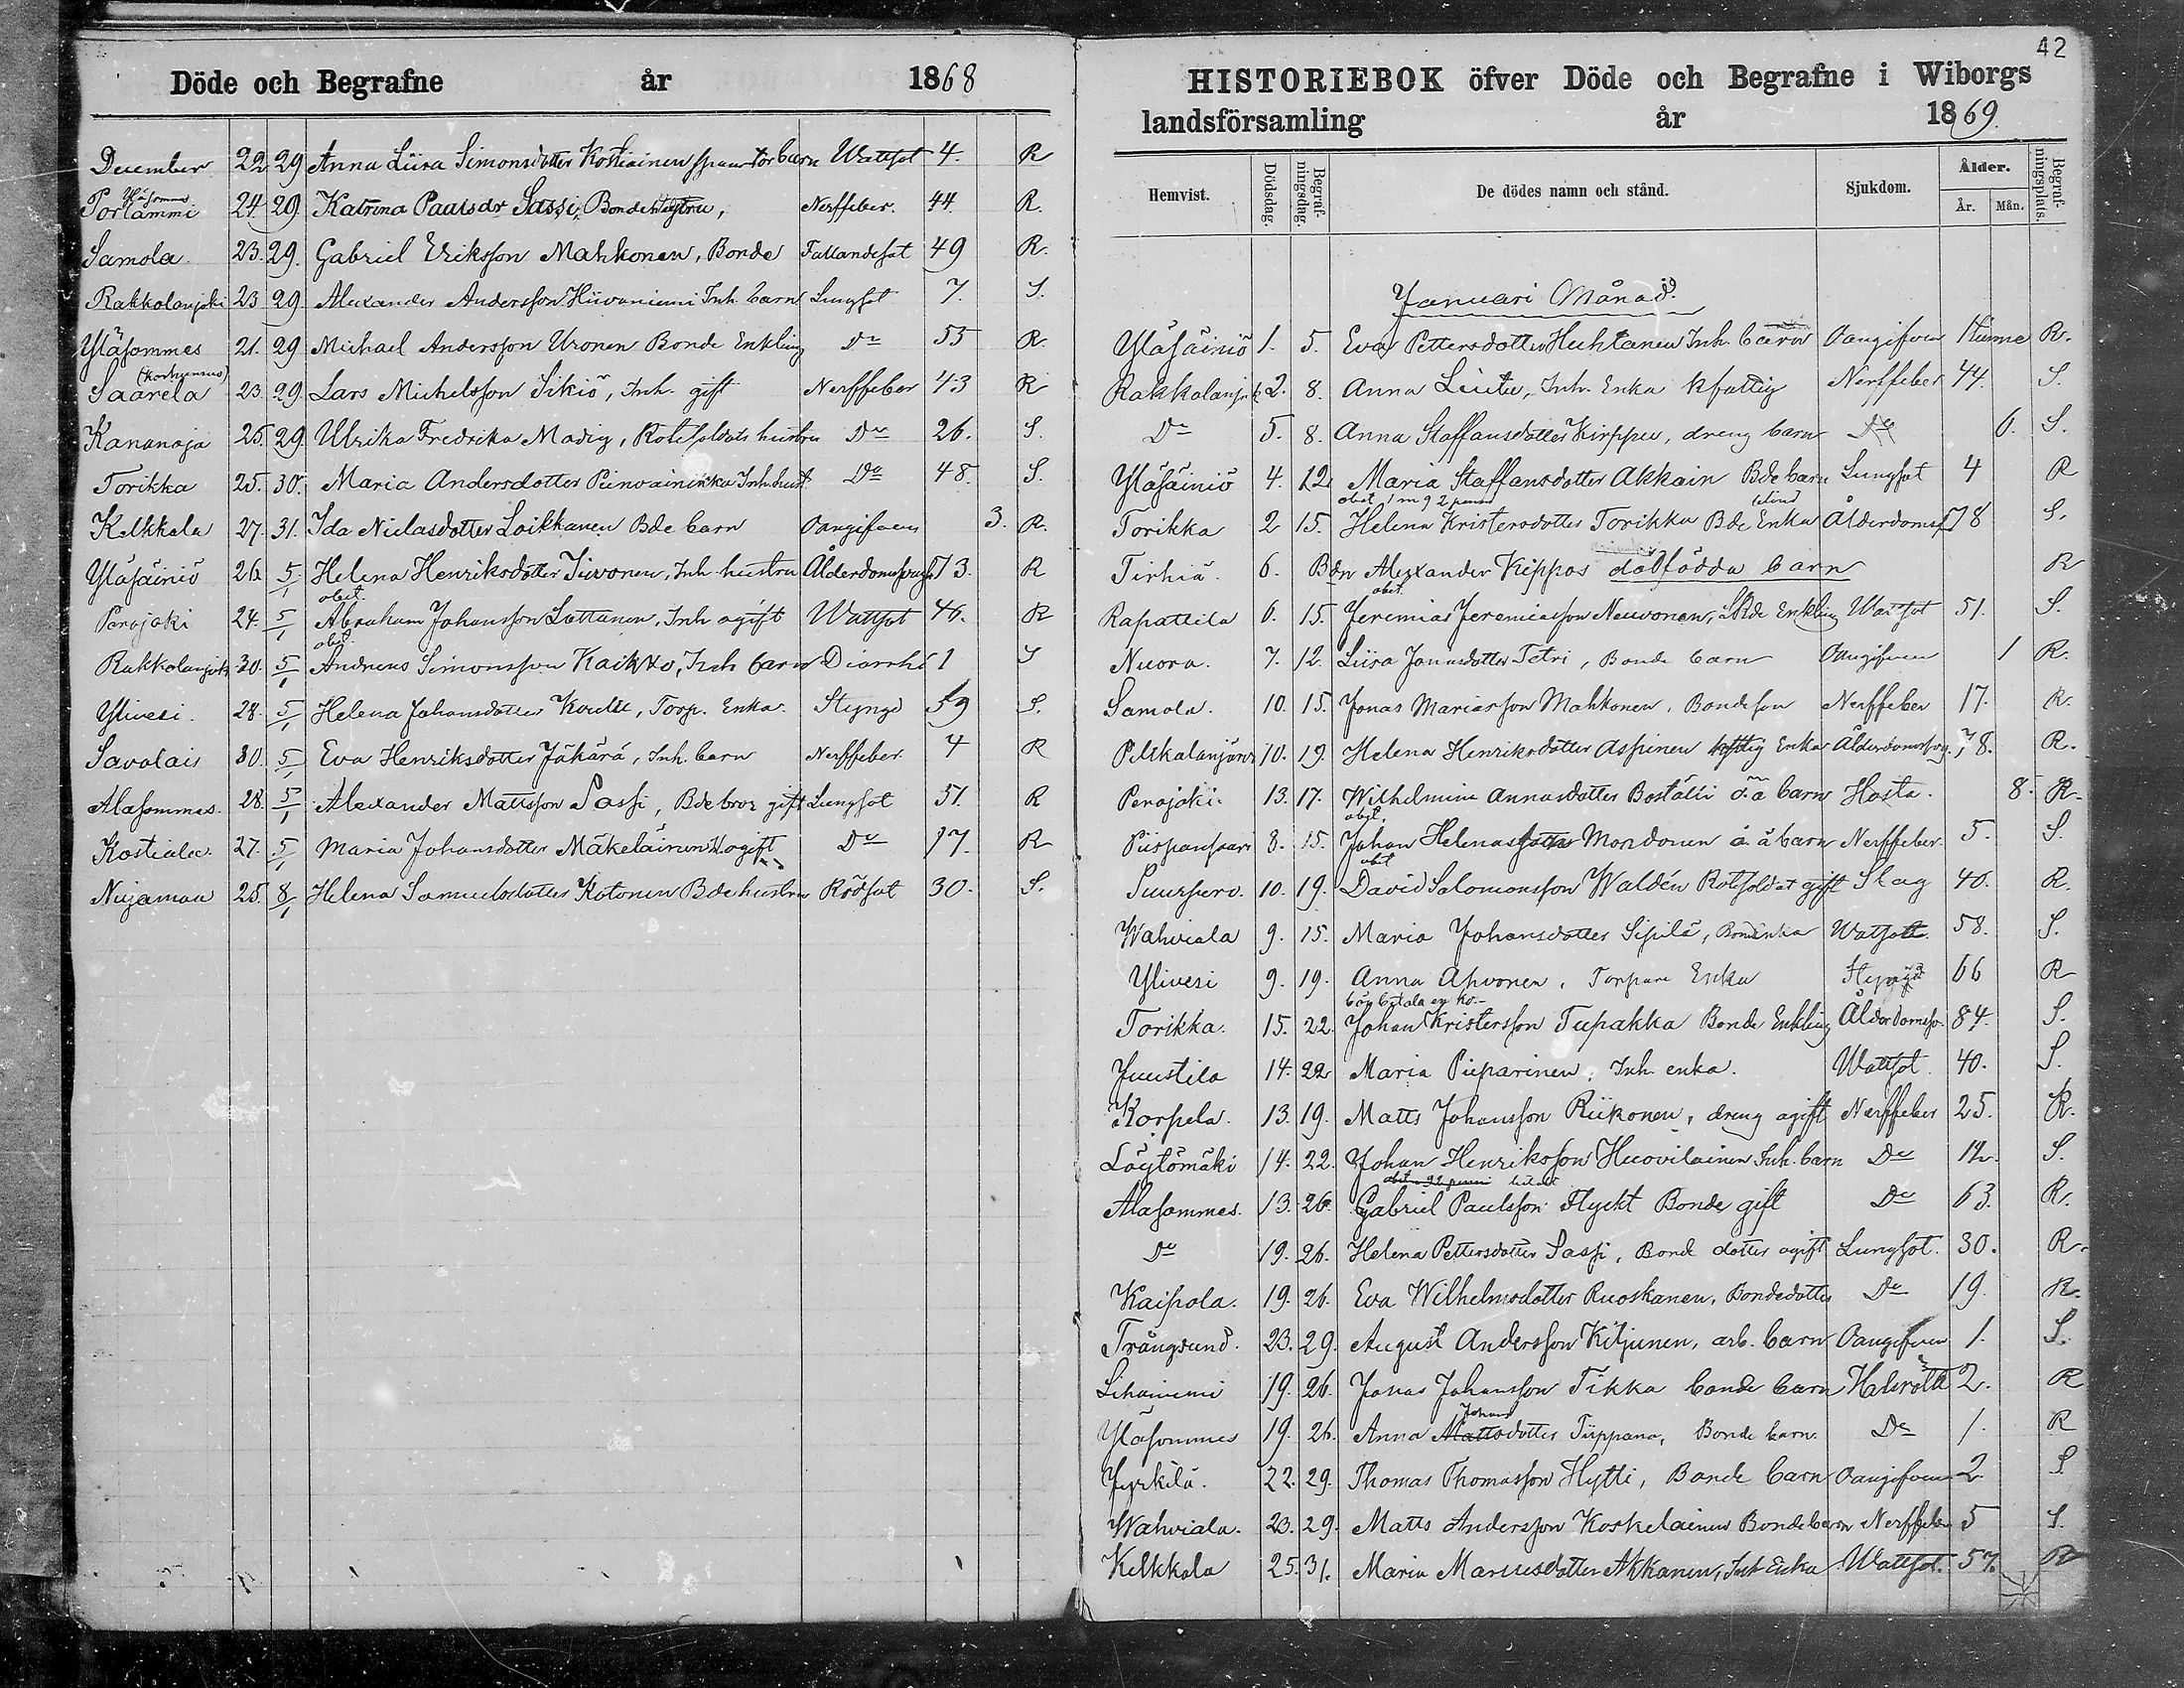 Döde och Begrafne år 1868
December 22 29 Anna Liisa Simonsdotter Kostiainen barn Wattsot 4. R
Yläsommes
Portammi 24. 29 Katrina Paulsdr Sassi, Bonde hustru, Nerffeber. 44. R.
Samola. 23. 29. Gabriel Eriksson Mahkonen, Bonde Fallandesot 49 R.
Rakkolanjoki 23 29 Alexander Andersson Hiivaniemi Inh. barn Lungsot 7. S.
Yläsommes 21. 29 Michael Andersson Uronen Bonde Enkling Do 55 R.
Saarela 23. 29. Lars Michelsson Sikiö, Inh. gift Nerffeber 43 R
Kananoja 25. 29. Ulrika Fredrika Modig, Rotesoldats hustru Do 26. S.
Torikka 25. 30. Maria Andersdotter Inh. hust. Do 48. S.
Kelkkala 27. 31. Ida Niclasdotter Loikkanen Bde barn Oangifven 3. R.
Yläsäiniö 26. 5/1 Helena Henriksdotter Jiivonen, Inh. hustru Ålderdomssvagh. 73. R
obet.
Perojoki 24. 5/1 Abraham Johansson Lottanen, Inh ogift Wattsot 46. R
obet.
Rakkolanjoki 30. 5/1 Andreas Simonsson Kaikko, Inh barn Diarrhé 1 S
Ylivesi. 28. 5/1 Helena Johansdotter Torp. Enka. Styngd 59 S.
Savolais 30. 5/1 Eva Henriksdotter Jäkärä, Inh. barn Nerffeber. 4 R
Alasommes. 28. 5/1 Alexander Mattsson Sassi, Bde bror gift Lungsot 51. R
Kostiala. 27. 5/1 Maria Johansdotter Mäkeläinen ogift Do 17. R
Nuijamaa 25. 8/1 Helena Samuelsdotter Kotonen Bde hustru Rödsot 30. S.
42
HISTORIEBOK öfver Döde och Begrafne i Wiborgs
landsförsamling år 1869.
Hemvist. Dödsdag. Begrafningsdag. De dödes namn och stånd. Sjukdom. Ålder. År. Mån. Begrafningsplats.
Januari Månad.
Yläsäiniö 1. 5. Eva Pettersdotter Huhtanen Inh. barn Oangifven 1 timme R.
Rakkolanjoki 2. 8. Anna Inh. Enka kfattig Nerffeber 44. S.
Do 5. 8. Anna Staffansdotter Kirppu, dreng barn Do 6. S.
Yläsäiniö 4. 12 Maria Staffansdotter Akkain Bde barn Lungsot 4 R
Torikka 2 15. Helena Kristersdotter Torikka Bde Enka Ålderdoms 78 S.
Tirhiä. 6. Bdn Alexander Kippos dödfödda barn R
obet.
Rapattila 6. 15. Jeremias Jeremiasson Neuvonen, Bde Enkling Wattsot 51. S.
Nuora. 7. 12. Liisa Jonasdotter Tetri, Bonde barn Oangifven 1 R.
Samola. 10. 15. Jonas Mariasson Mahkonen, Bondeson Nerffeber 17. R.
Pelkkalanjärvi 10. 19. Helena Henriksdotter Aspinen kfttig Enka Ålderdomssvag. 78. R.
Perojoki. 13. 17. Wilhelmina Annasdotter Boställi o.ä barn Hosta. 8. R.
obet.
Piispansaari 8. 15. Johan Helenasson Mondonen o. ä barn Nerffeber. 5. S.
obet
Suurpero. 10. 19. David Salomonsson Waldén Rotesoldat gift Slag 40. R.
Wahviala 9. 15. Maria Johansdotter Sipilä, Bondenka Wattsott. 58. S.
Ylivesi 9. 19. Anna Ahvonen, Torpare Enka Styngd 66 R
bör betala en ko.-
Torikka. 15. 22. Johan Kristersson Tupakka Bonde Enkling Ålderdomssv. 84. S.
Juustila 14. 22 Maria Pieparinen, Inh. enka. Wattsot 40. S.
Korpela. 13. 19. Matts Johansson Riikonen, dreng ogift Nerffeber 25. R.
Löytömäki 14. 22. Johan Henriksson Huovilainen Inh. barn Do 12. S.
Alasommes. 13. 26. Gabriel Paulsson Flyckt Bonde gift Do 63. R.
Do 19. 26. Helena Pettersdotter Sassi, Bond dotter ogift Lungsot. 30. R.
Kaipola. 19. 26. Eva Wilhelmsdotter Ruoskanen, Bondedotter Do 19. R.
Trångsund. 23. 29. August Andersson Kiljunen, arb. barn Oangifven 1. S.
Lihaniemi 19. 26. Jonas Johansson Tikka bonde barn Halsröta 2. R
Johans
Yläsommes 19. 26. Anna Mattsdotter Tiippana, Bonde barn. Do 1. R
Jyrkilä. 22. 29. Thomas Thomasson Hytti, Bonde barn Oangifven 2. S
Wahviala. 23. 29. Matts Andersson Koskelainen Bondebarn Nerffeber 5 S.
Kelkkala 25. 31. Maria Mariusdotter Akkanen, Inh Enka Wattsot. 57. R